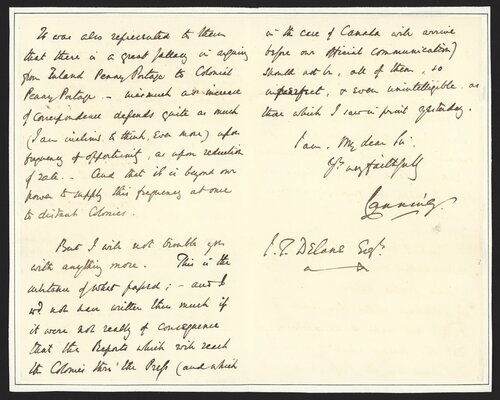 It was also represented to them
that there is a great fallacy in arguing
from Inland Penny Postage to Colonial
Penny Postage. – inasmuch as increase
of correspondence depends quite as much
(I am inclined to think, even more) upon
frequency of opportunity, as upon reduction
of rate. – And that it is beyond our
power to supply this frequency at once
to distant Colonies.
But I will not trouble you
with anything more. This is the
substance of what passed; – and I
wd not have written thus much if
it were not really of consequence
that the Reports which will reach
the Colonies thro' the Press (and which
in the case of Canada will arrive
before our official communication)
should not be, all of them, so
imperfect, & even unintelligible, as
those which I saw in print yesterday.
I am, My dear Sir,
Yrs very faithfully
Canning.
J. T. Delane Esqr.